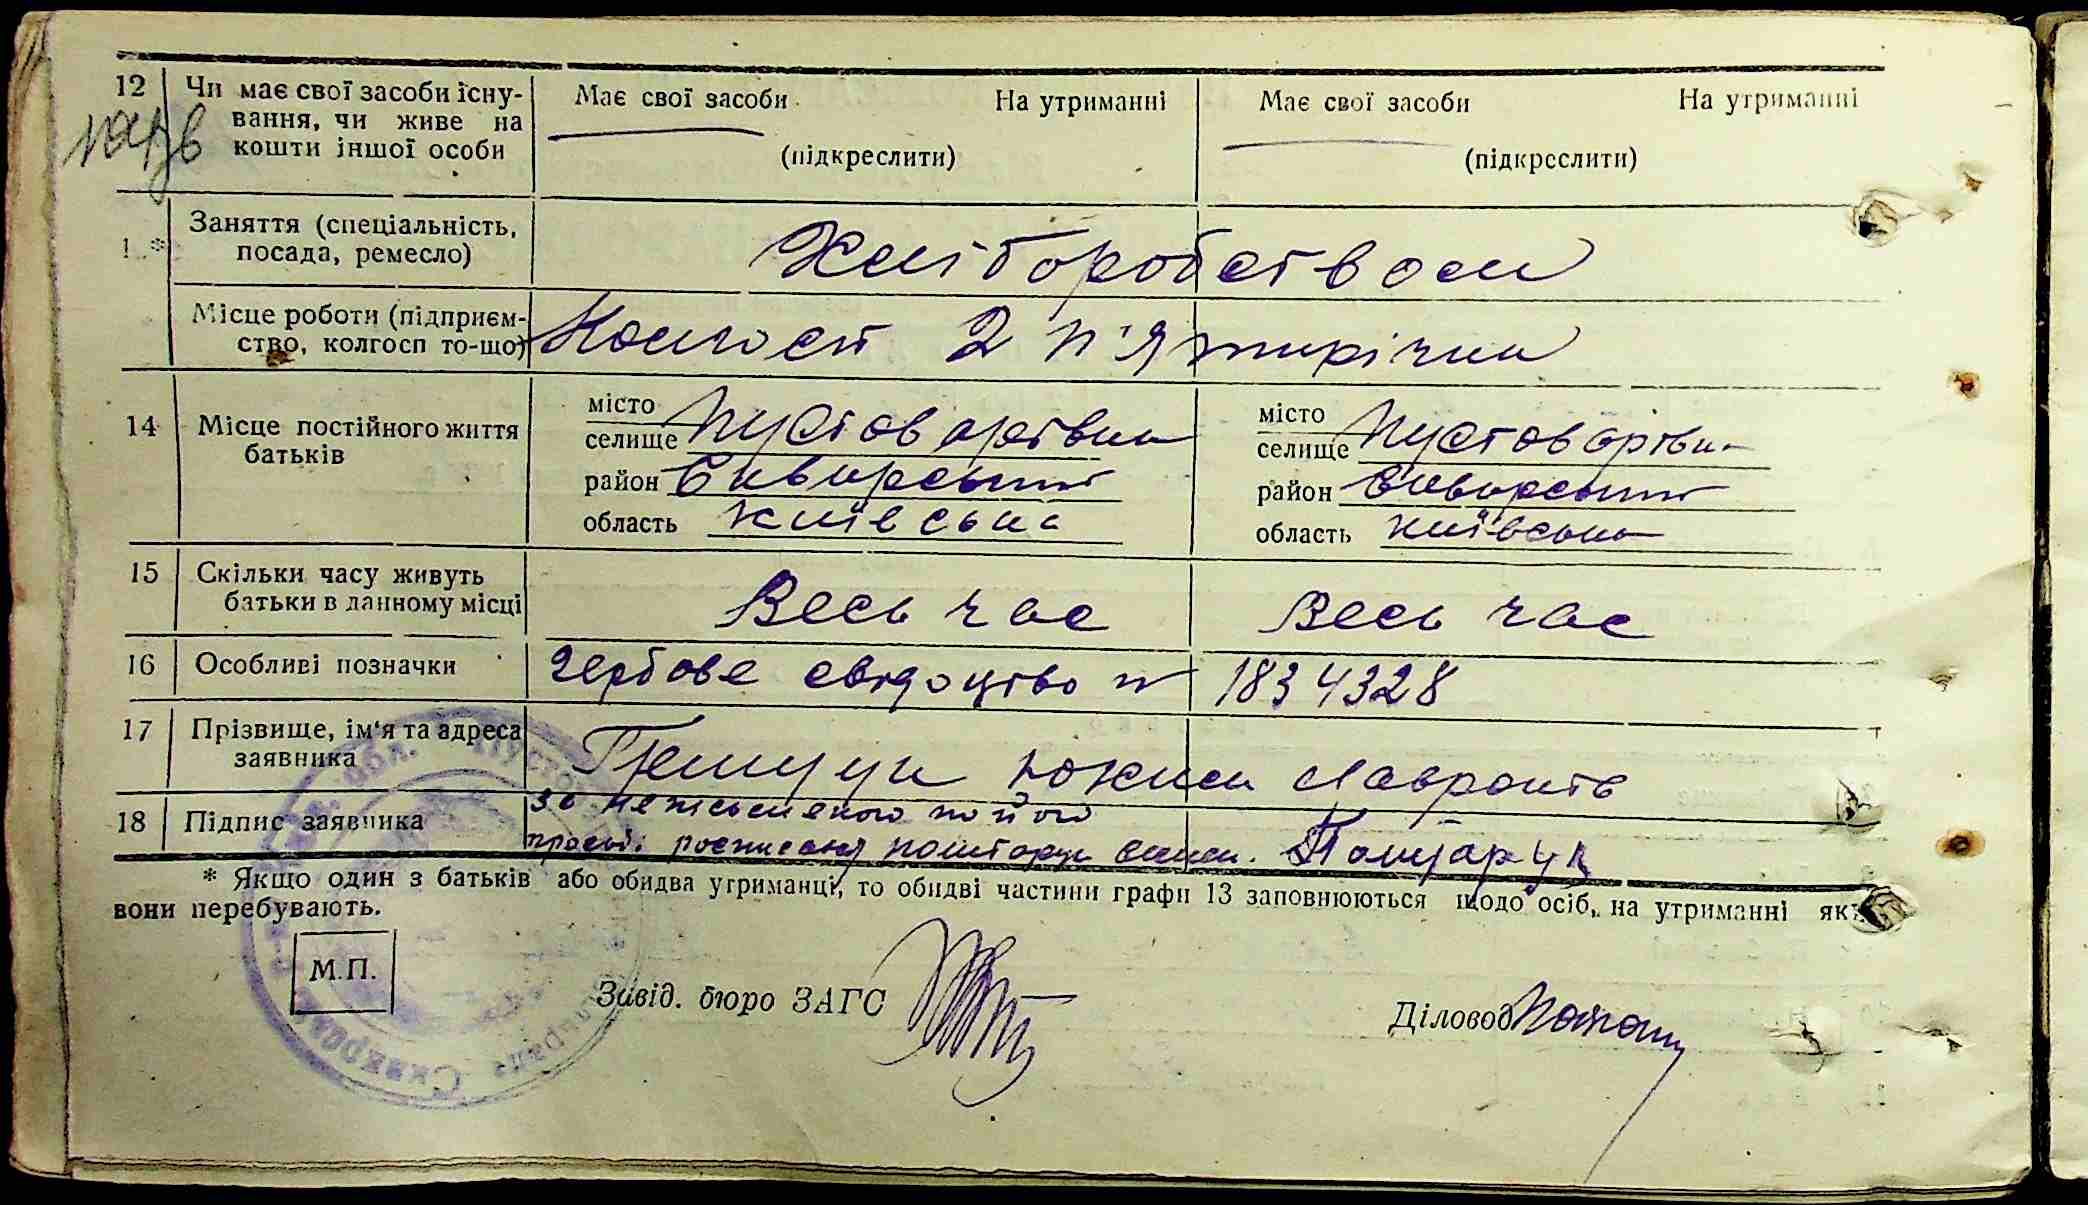 12 Чи має свої засоби існу- Має свої засоби На утриманні Має свої засоби На утриманні
вання, чи живе на
кошти іншої особи (підкреслити) (підкреслити)
Заняття (спеціальність, Хліборобством
1 * посада, ремесло)
Місце роботи (підприєм- Колгосп 2 п'ятирічки
ство, колгосп то-що)
місто місто
14 Місце постійного життя селище Пустоварівка селище Пустоварівка
батьків район Сквирський район Сквирський
область Київська область Київська
15 Скільки часу живуть Весь час Весь час
батьки в данному місці
16 Особливі позначки Гербове свідоцтво № 1834328
17 Прізвище, ім'я та адреса
заявника Юхим
за неписьменого по його
18 Підпис заявника просьбі
* Якщо один з батьків або обидва утриманці, то обидві частини графи 13 заповнюються щодо осіб, на утриманні яки
вони перебувають.
М.П.
Завід. бюро ЗАГС Діловод